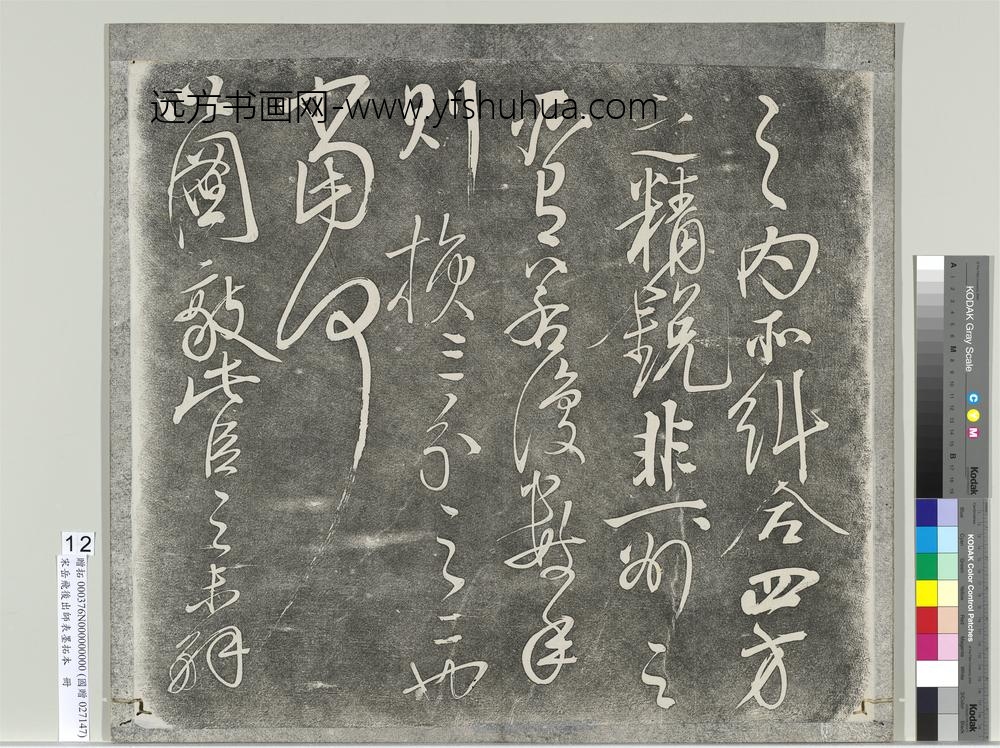 之内所糾合四方
之精銳非一州之
所有若復數年
則損三分之二也
當何以
圖敵此臣之未解
远方书画网-www.yfshuhua.com
12
贈拓 000376N000000000 (國贈 027147)
宋岳飛後出師表墨拓本 冊
KODAK Gray Scale
C Y M
Kodak
A 1 2 3 4 5 6 M 8 9 10 11 12 13 14 15 B 17 18 19
KODAK Color Control Patches
Kodak